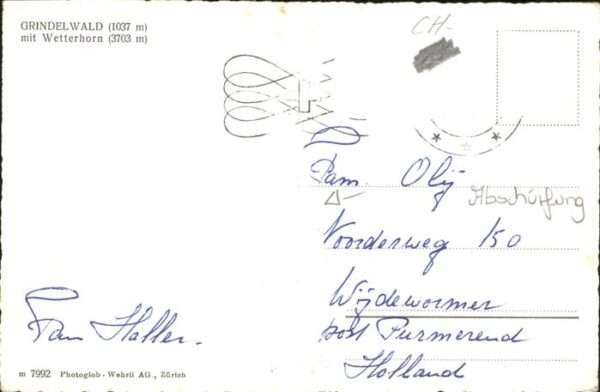 GRINDELWALD (1037 m)
mit Wetterhorn (3703 m)
CH-
Fam. Olij
Abschürfung
Noorderweg 150
Wijdewormer
post Purmerend
Holland
Fam Haller.
m 7992 Photoglob-Wehrli AG., Zürich